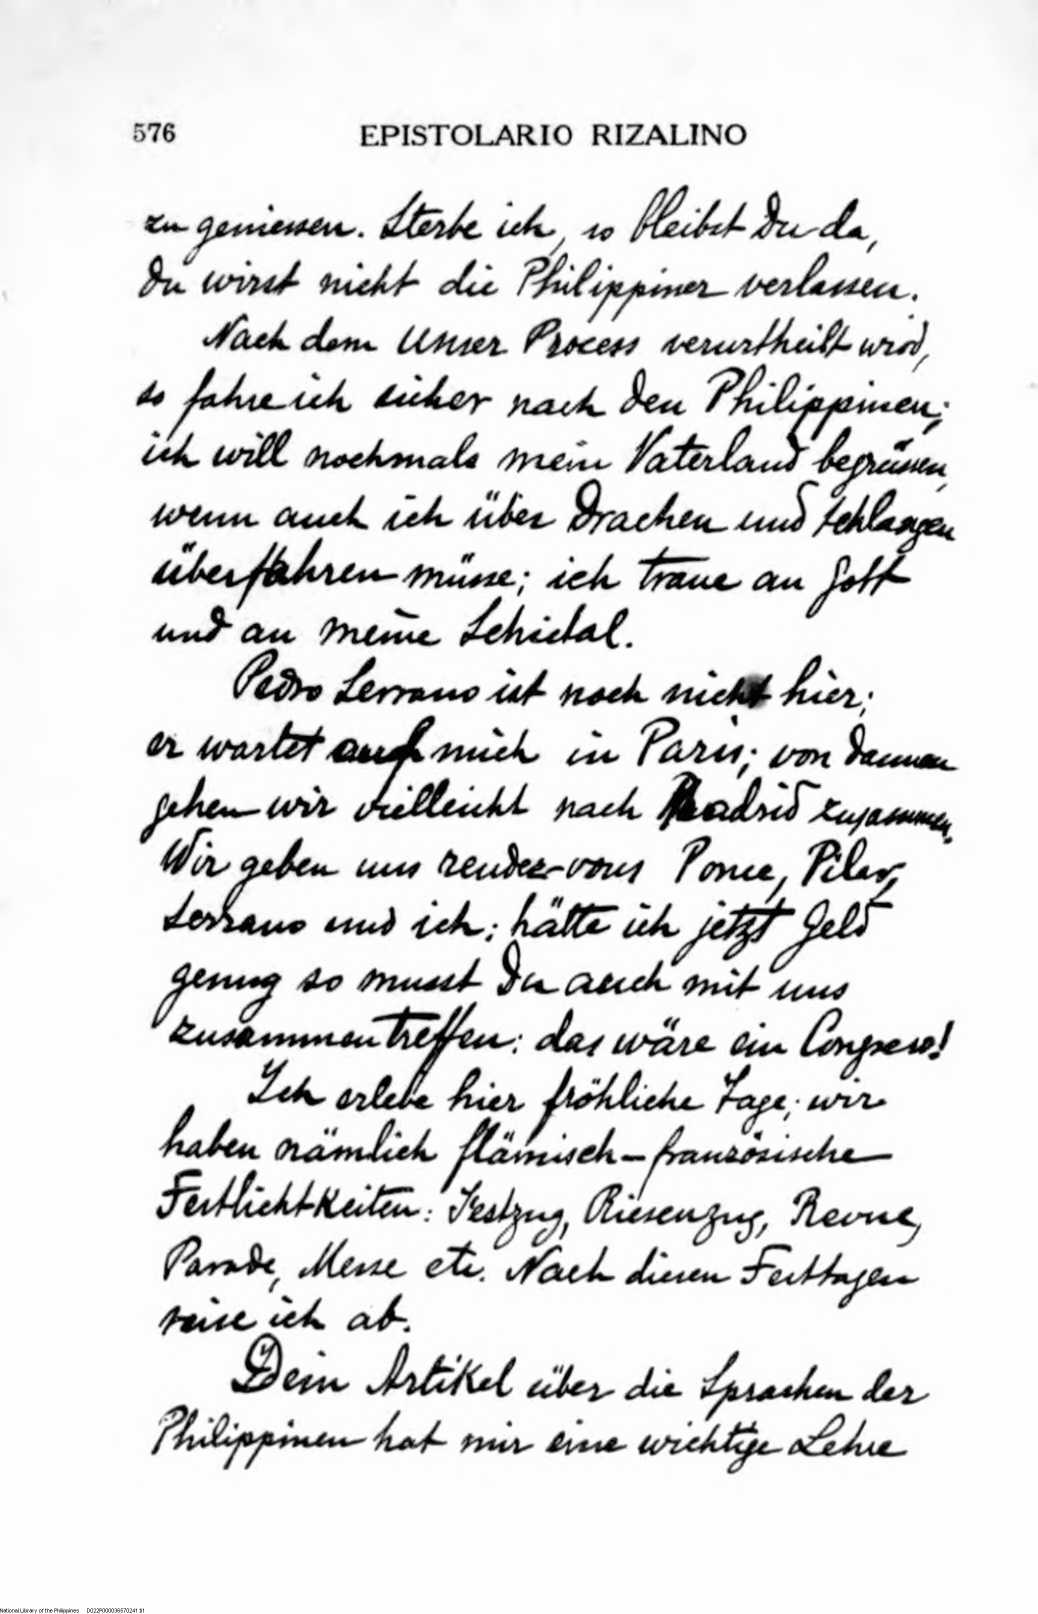 576 EPISTOLARIO RIZALINO
zu geniessen. Sterbe ich, so bleibst Du da,
du wirst nicht die Philippiner verlassen.
Nach dem Unser Process verurtheilt wird,
so fahre ich sicher nach den Philippinen;
ich will nochmals mein Vaterland begrüssen,
wenn auch ich über Drachen und Schlangen
überfahren müsse; ich traue an Gott
und an meine Schicksal.
Pedro Serrano ist noch nicht hier;
er wartet auf mich in Paris; von dannen
gehen wir vielleicht nach Madrid zusammen.
Wir geben uns rendez-vous Ponce, Pilar,
Serrano und ich; hätte ich jetzt Geld
genug so musst Du auch mit uns
zusammentreffen: das wäre ein Congress!
Ich erlebe hier fröhliche Tage; wir
haben nämlich flämisch-französische
Festlichtkeiten: Festzug, Riesenzug, Revue,
Parade, Messe etc. Nach diesen Festtagen
reise ich ab.
Dein Artikel über die Sprachen der
Philippinen hat mir eine wichtige Lehre
National Library of the Philippines